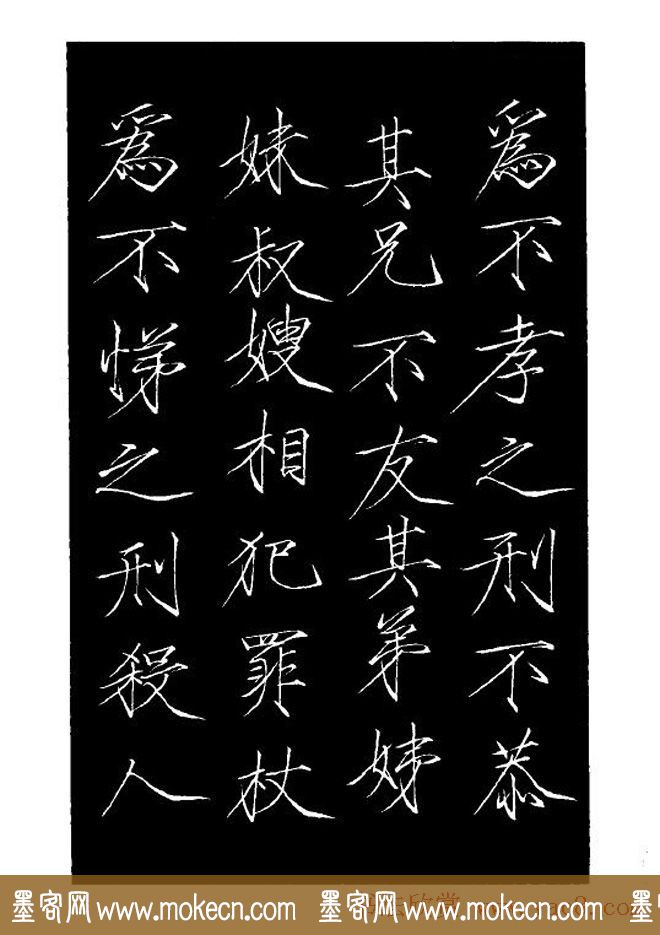 為不孝之刑不恭
其兄不友其弟姊
妹叔嫂相犯罪杖
為不悌之刑殺人
墨客网 www.mokecn.com 墨客网 www.mokecn.com 墨